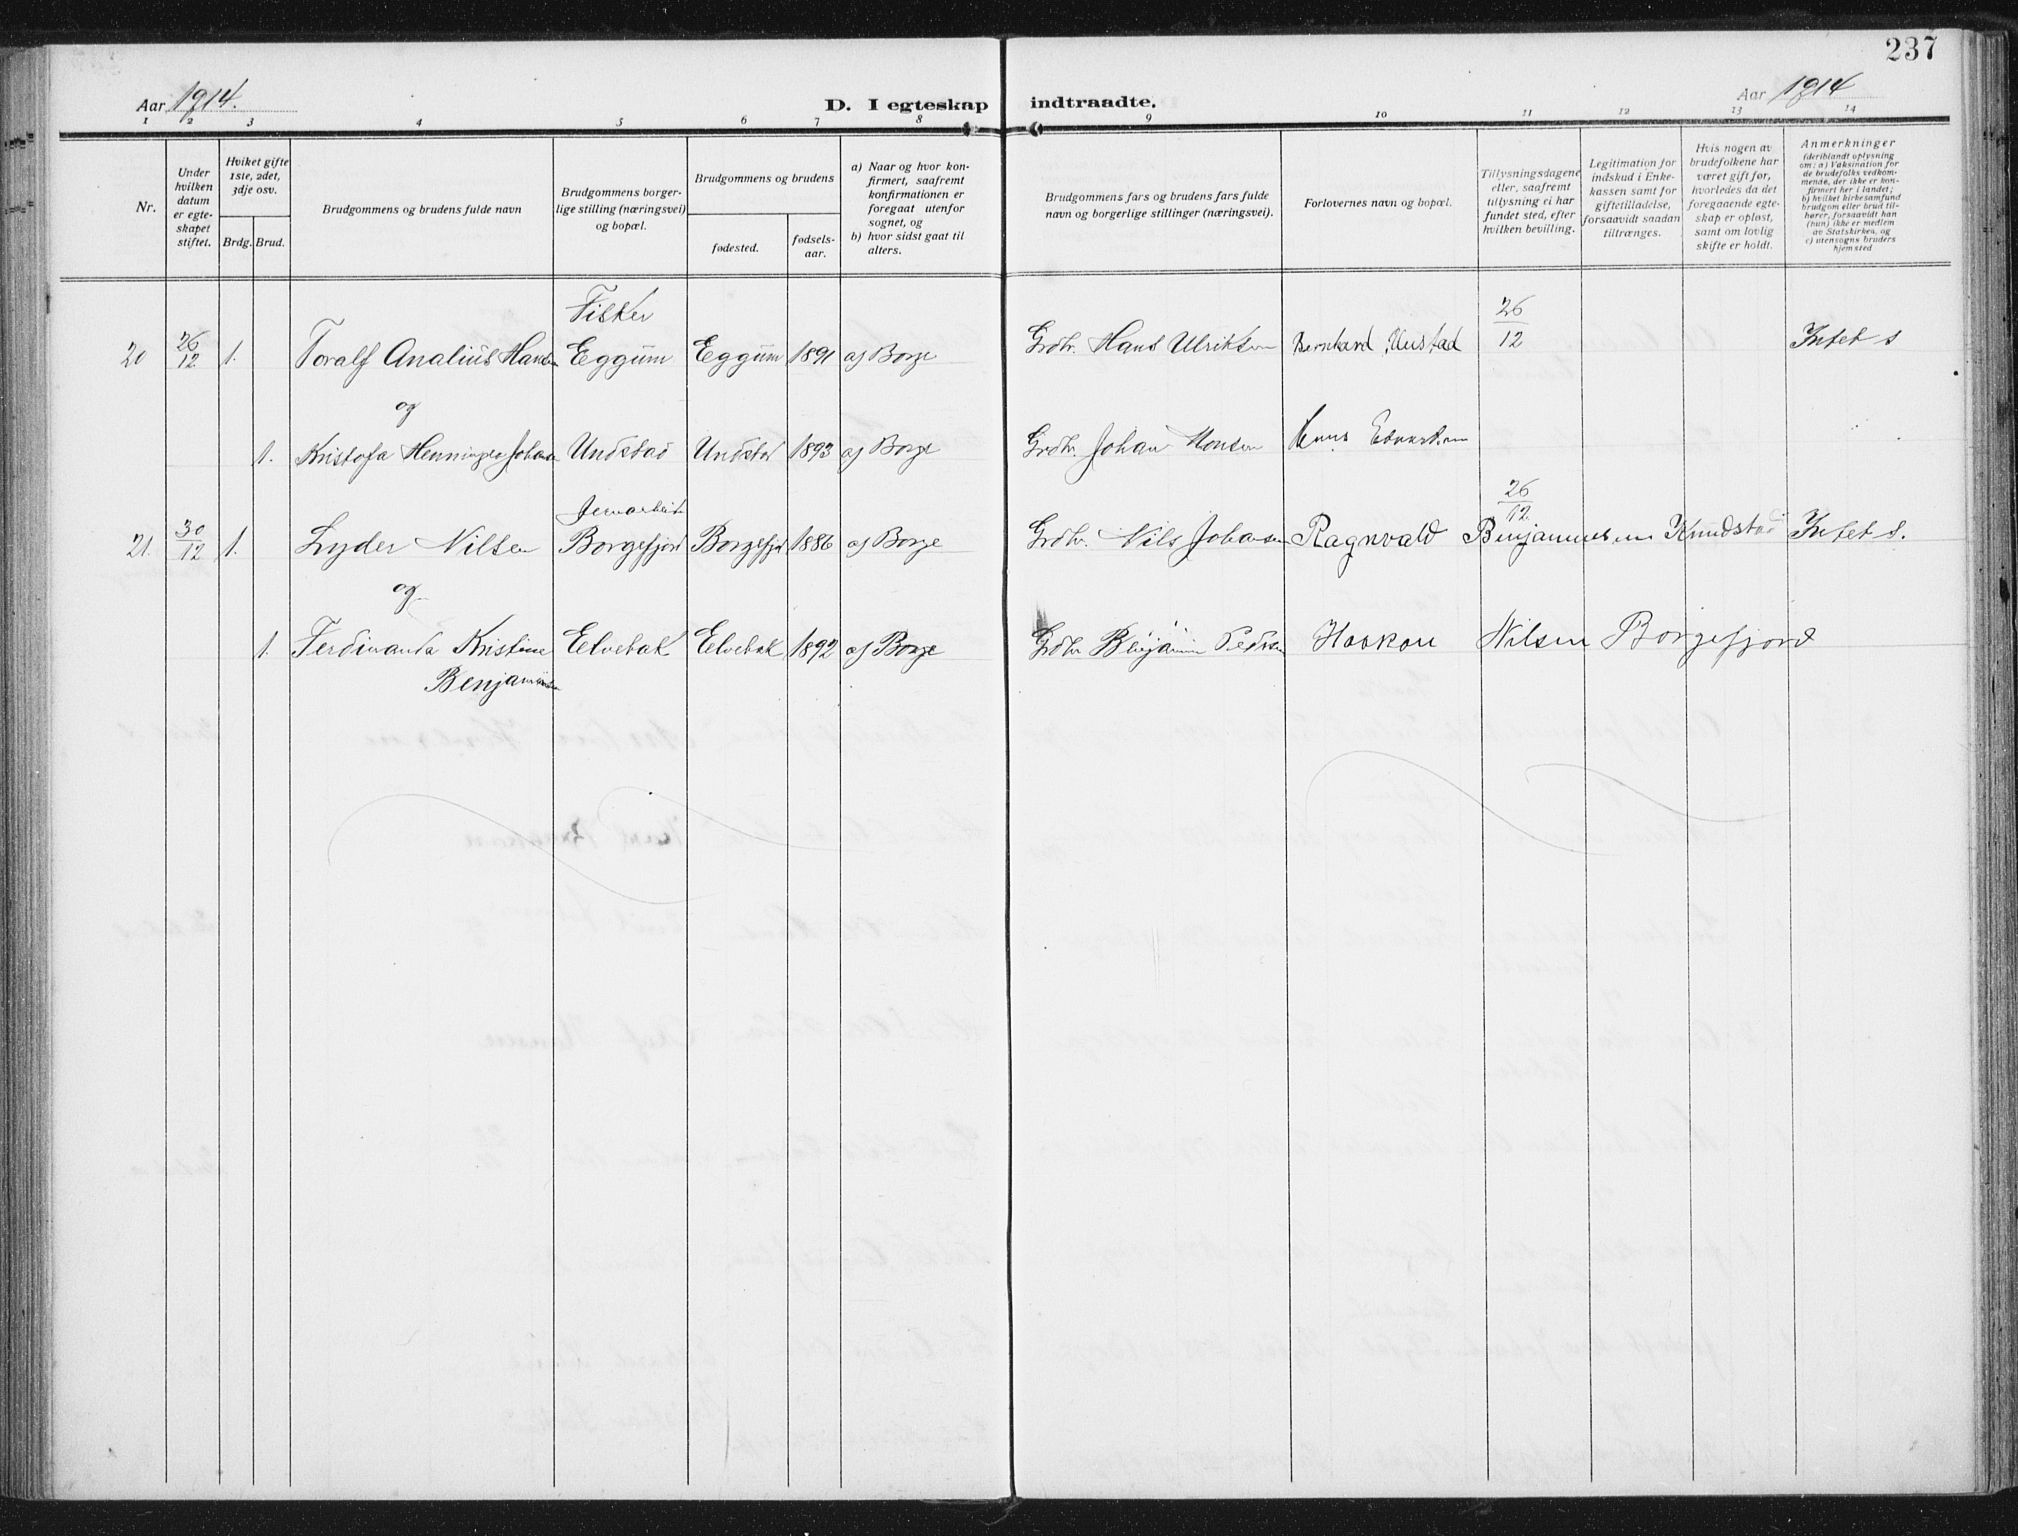 237
Aar 1914. D. I egteskap indtraadte. Aar 1914
1 2 3 4 5 6 7 8 9 10 11 12 13 14
Nr.
Under hvilken datum er egteskapet stiftet.
Hviket gifte 1ste, 2det, 3dje osv.
Brdg. Brud.
Brudgommens og brudens fulde navn
Brudgommens borgerlige stilling (næringsvei) og bopæl.
Brudgommens og brudens
fødested.
fødsels-aar.
a) Naar og hvor konfirmert, saafremt konfirmationen er foregaat utenfor sognet, og
b) hvor sidst gaat til alters.
Brudgommens fars og brudens fars fulde navn og borgerlige stillinger (næringsvei).
Forlovernes navn og bopæl.
Tillysningsdagene eller, saafremt tillysning ei har fundet sted, efter hvilken bevilling.
Legitimation for indskud i Enkekassen samt for giftetilladelse, forsaavidt saadan tiltrænges.
Hvis nogen av brudefolkene har været gift før, hvorledes da det foregaaende egteskap er opløst, samt om lovlig skifte er holdt.
Anmerkninger
(deriblandt oplysning om: a) Vaksination for de brudefolks vedkommende, der ikke er konfirmert her i landet; b) hvilket kirkesamfund brudgom eller brud tilhører, forsaavidt han (hun) ikke er medlem av Statskirken, og c) utensogns bruders hjemsted
Fisker 26
20 26/12 1. Toralf Analius Hansen Eggum Eggum 1891 af Borge Grdbr. Hans Ulriksen Bernhard 12 Intet s
og
1. Kristofa Henningea Johansen Undstad Undstad 1893 af Borge Grdbr. Johan Monsen
Jernarbeid. 26
21. 30/12 1. Lyder Nilsen Borgefjord Borgefjord 1886 af Borge Grdbr. Nils Johansen Ragnvald 12. Benjaminsen Knudstad Intet s.
og
1. Ferdinanda Kristine Elvebak Elvebak 1892 af Borge Grdbr Benjamin Pedersen Haakon Nilsen Borgefjord
Benjaminsen